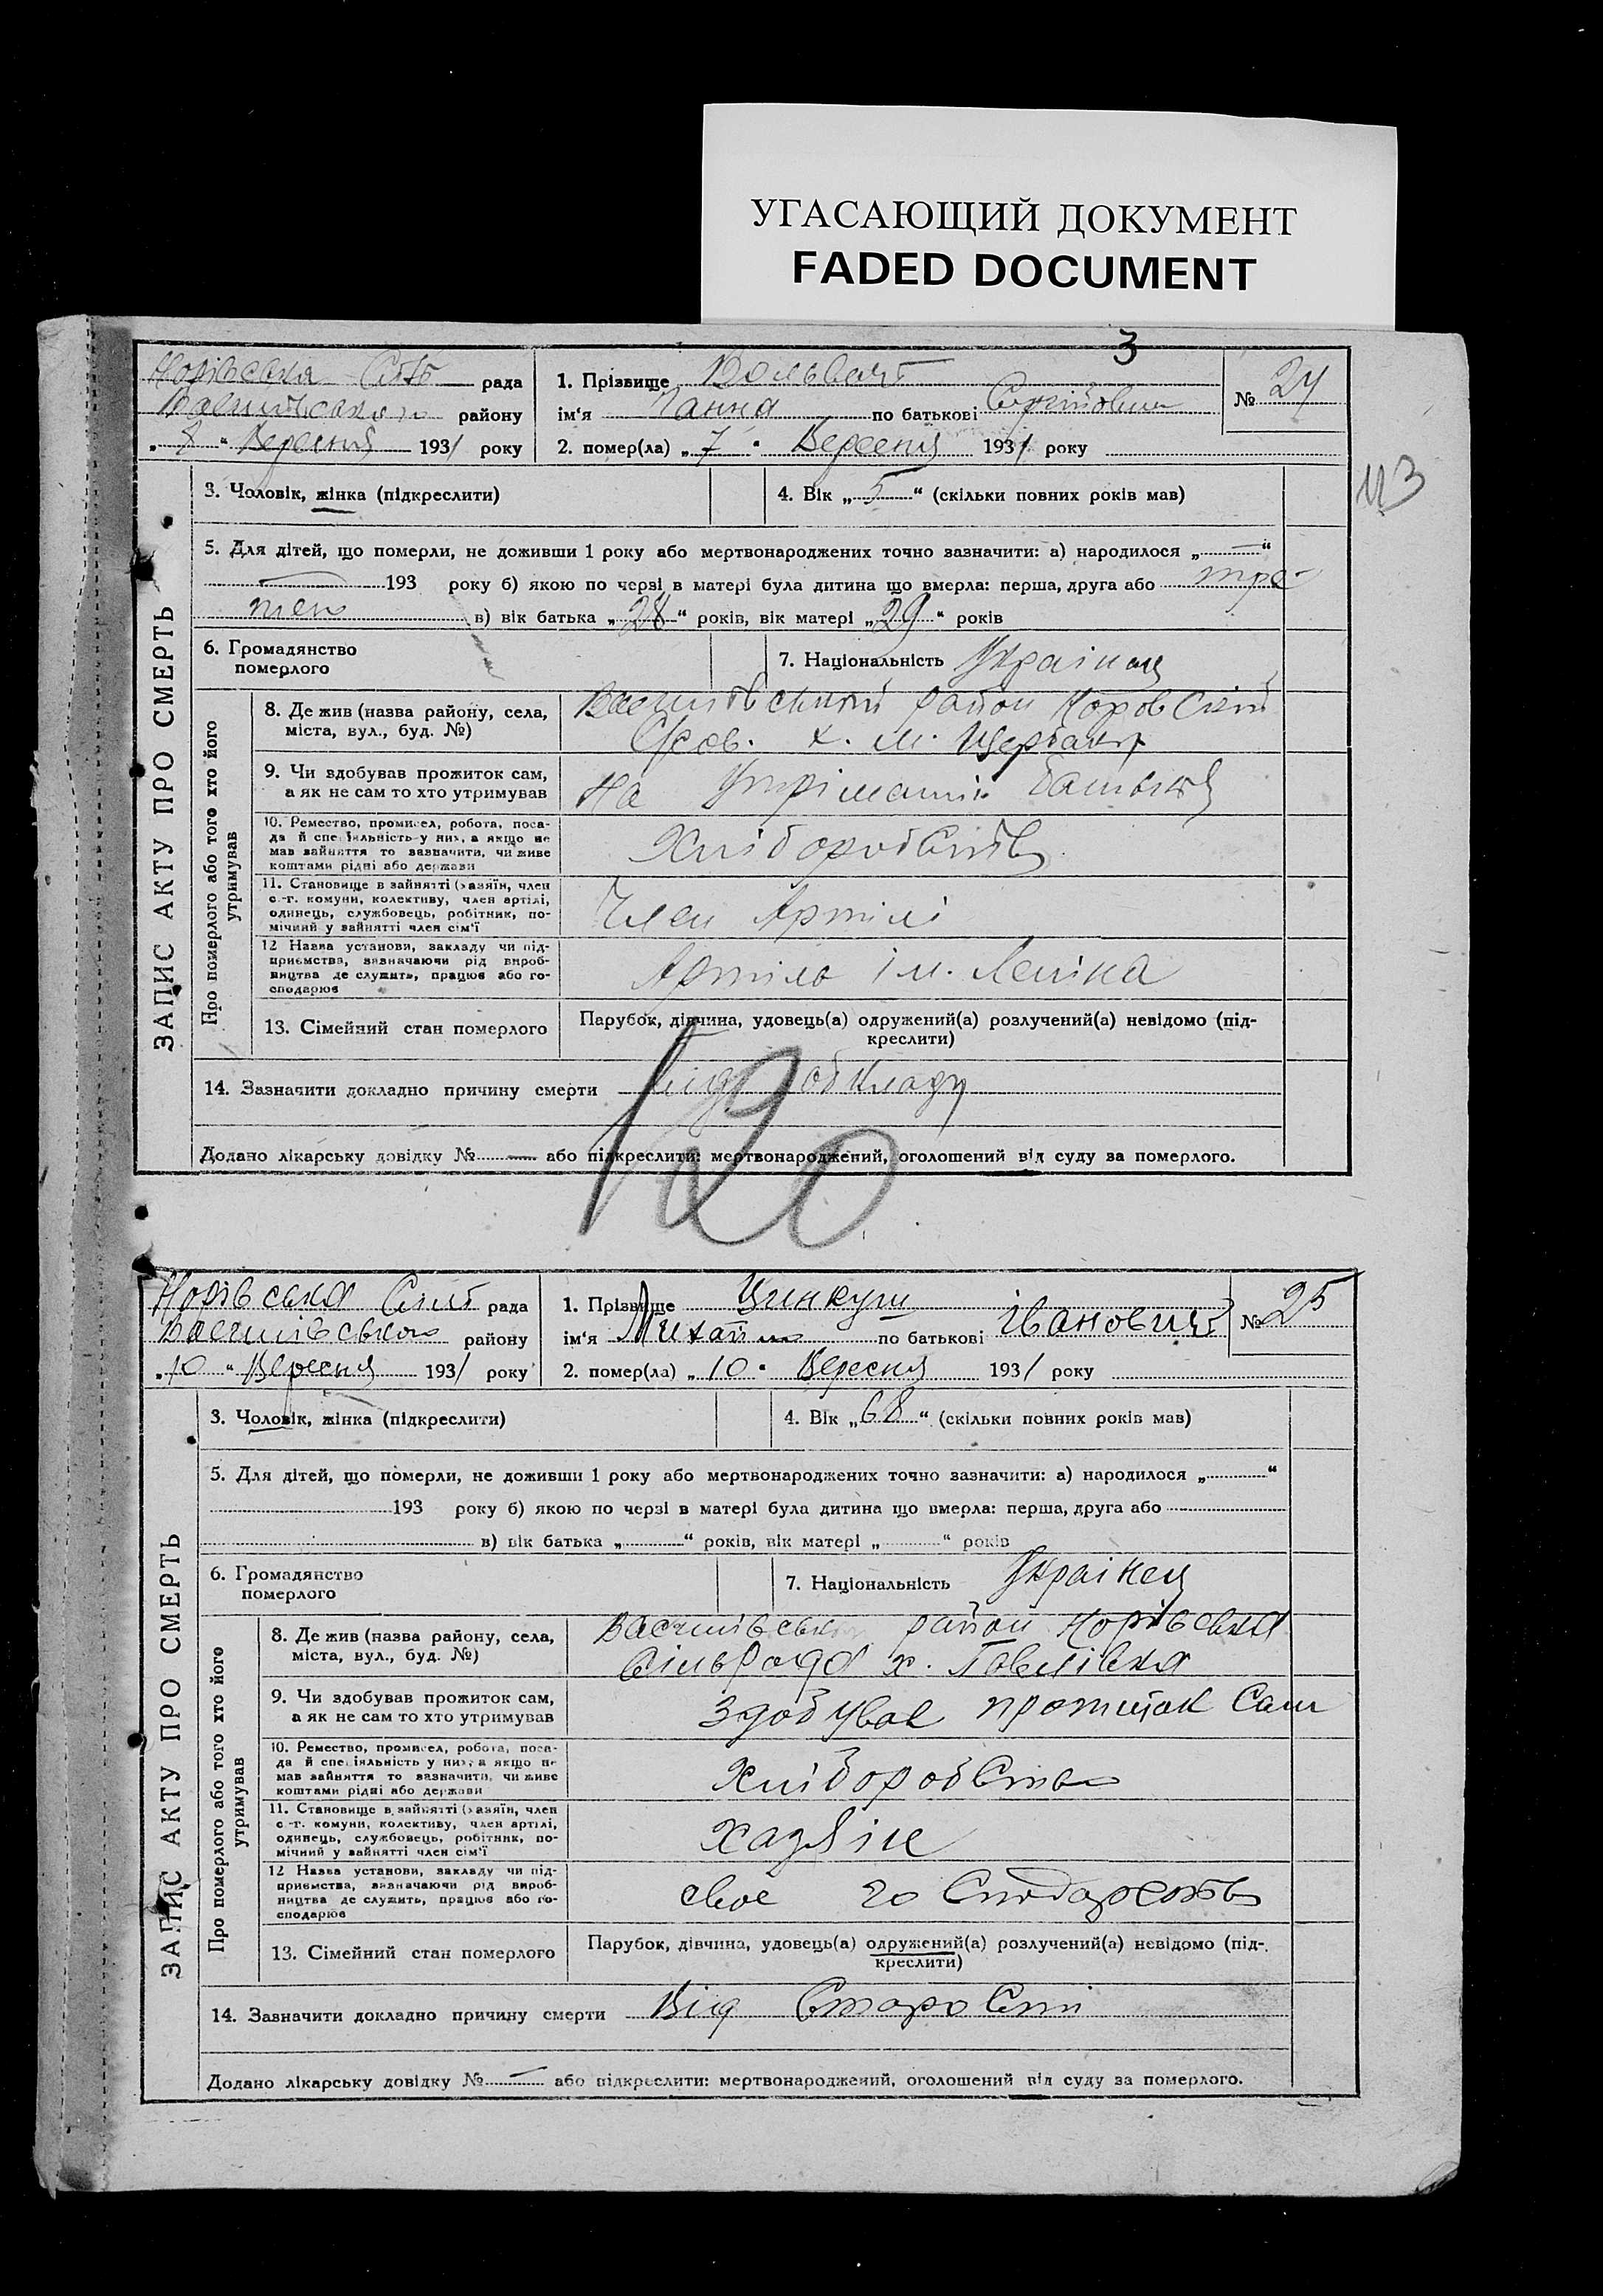 УГАСАЮЩИЙ ДОКУМЕНТ
FADED DOCUMENT
3
рада
району
„ 8 “ Вересня 1931 року
1. Прізвище
ім'я Ганна по батькові
2. помер(ла) „ 7 “ Вересня 1931 року
№ 24
113
ЗАПИС АКТУ ПРО СМЕРТЬ
3. Чоловік, жінка (підкреслити)
4. Вік „ 5 “ (скільки повних років мав)
5. Для дітей, що померли, не доживши 1 року або мертвонароджених точно зазначити: а) народилося „ — “
— 193 року б) якою по черзі в матері була дитина що вмерла: перша, друга або
в) вік батька „ 28 “ років, вік матері „ 29 “ років
6. Громадянство
померлого
7. Національність
Про померлого або того хто його
утримував
8. Де жив (назва району, села,
міста, вул., буд. №)
район
х.
9. Чи здобував прожиток сам,
а як не сам то хто утримував
На
10. Ремество, промисел, робота, поса-
да й спеціяльність у них, а якщо не
мав зайняття то зазначити, чи живе
коштами рідні або держави
11. Становище в зайнятті (хазяїн, член
с.-г. комуни, колективу, член артілі,
одинець, службовець, робітник, по-
мічний у зайнятті член сім'ї
Член Артілі
12 Назва установи, закладу чи під-
приємства, зазначаючи рід вироб-
ництва де служить, працює або го-
сподарює
Артіль ім. Леніна
13. Сімейний стан померлого
Парубок, дівчина, удовець(а) одружений(а) розлучений(а) невідомо (під-
креслити)
14. Зазначити докладно причину смерти від обкладу
120
Додано лікарську довідку № — або підкреслити: мертвонароджений, оголошений від суду за померлого.
рада
району
„ 10 “ Вересня 1931 року
1. Прізвище Цинкуш
ім'я Михайло по батькові Івановичь
2. помер(ла) „ 10 “ Вересня 1931 року
№ 25
ЗАПИС АКТУ ПРО СМЕРТЬ
3. Чоловік, жінка (підкреслити)
4. Вік „ 68 “ (скільки повних років мав)
5. Для дітей, що померли, не доживши 1 року або мертвонароджених точно зазначити: а) народилося „ “
193 року б) якою по черзі в матері була дитина що вмерла: перша, друга або
в) вік батька „ “ років, вік матері „ “ років
6. Громадянство
померлого
7. Національність Українец
Про померлого або того хто його
утримував
8. Де жив (назва району, села,
міста, вул., буд. №)
район
сільрада х. Павлівка
9. Чи здобував прожиток сам,
а як не сам то хто утримував
здобував прожиток сам
10. Ремество, промисел, робота, поса-
да й спеціяльність у них, а якщо не
мав зайняття то зазначити, чи живе
коштами рідні або держави
Хліборобство
11. Становище в зайнятті (хазяїн, член
с.-г. комуни, колективу, член артілі,
одинець, службовець, робітник, по-
мічний у зайнятті член сім'ї
хазяін
12 Назва установи, закладу чи під-
приємства, зазначаючи рід вироб-
ництва де служить, працює або го-
сподарює
своє господарство
13. Сімейний стан померлого
Парубок, дівчина, удовець(а) одружений(а) розлучений(а) невідомо (під-
креслити)
14. Зазначити докладно причину смерти Від старости
Додано лікарську довідку № — або підкреслити: мертвонароджений, оголошений від суду за померлого.